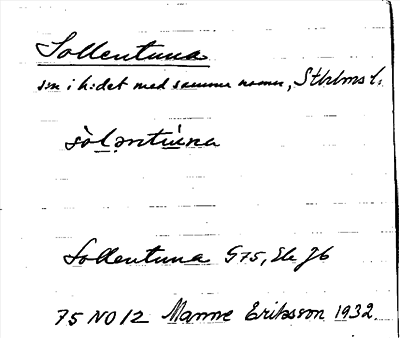 Sollentuna
sn i h:det med samma namn, Sthlms l.
sòl̡əntúna
Sollentuna G75, Ek Jb
75 NO 12 Manne Eriksson 1932.